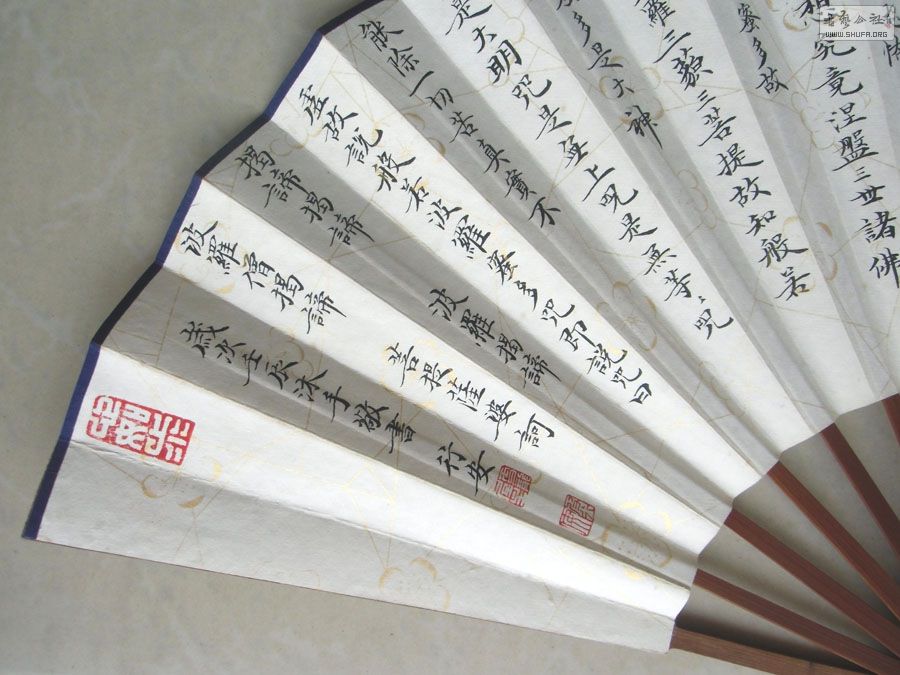 想究竟涅盤三世諸佛
蜜多故
羅三藐三菩提故知般若
多是大神
是大明咒是無上咒是無等〻咒
能除一切苦真實不
虛故說般若波羅蜜多咒即說咒曰
揭諦揭諦 波羅揭諦
波羅僧揭諦 菩提薩婆訶
歲次壬辰沐手敬書 行安
書藝公社
WWW.SHUFA.ORG